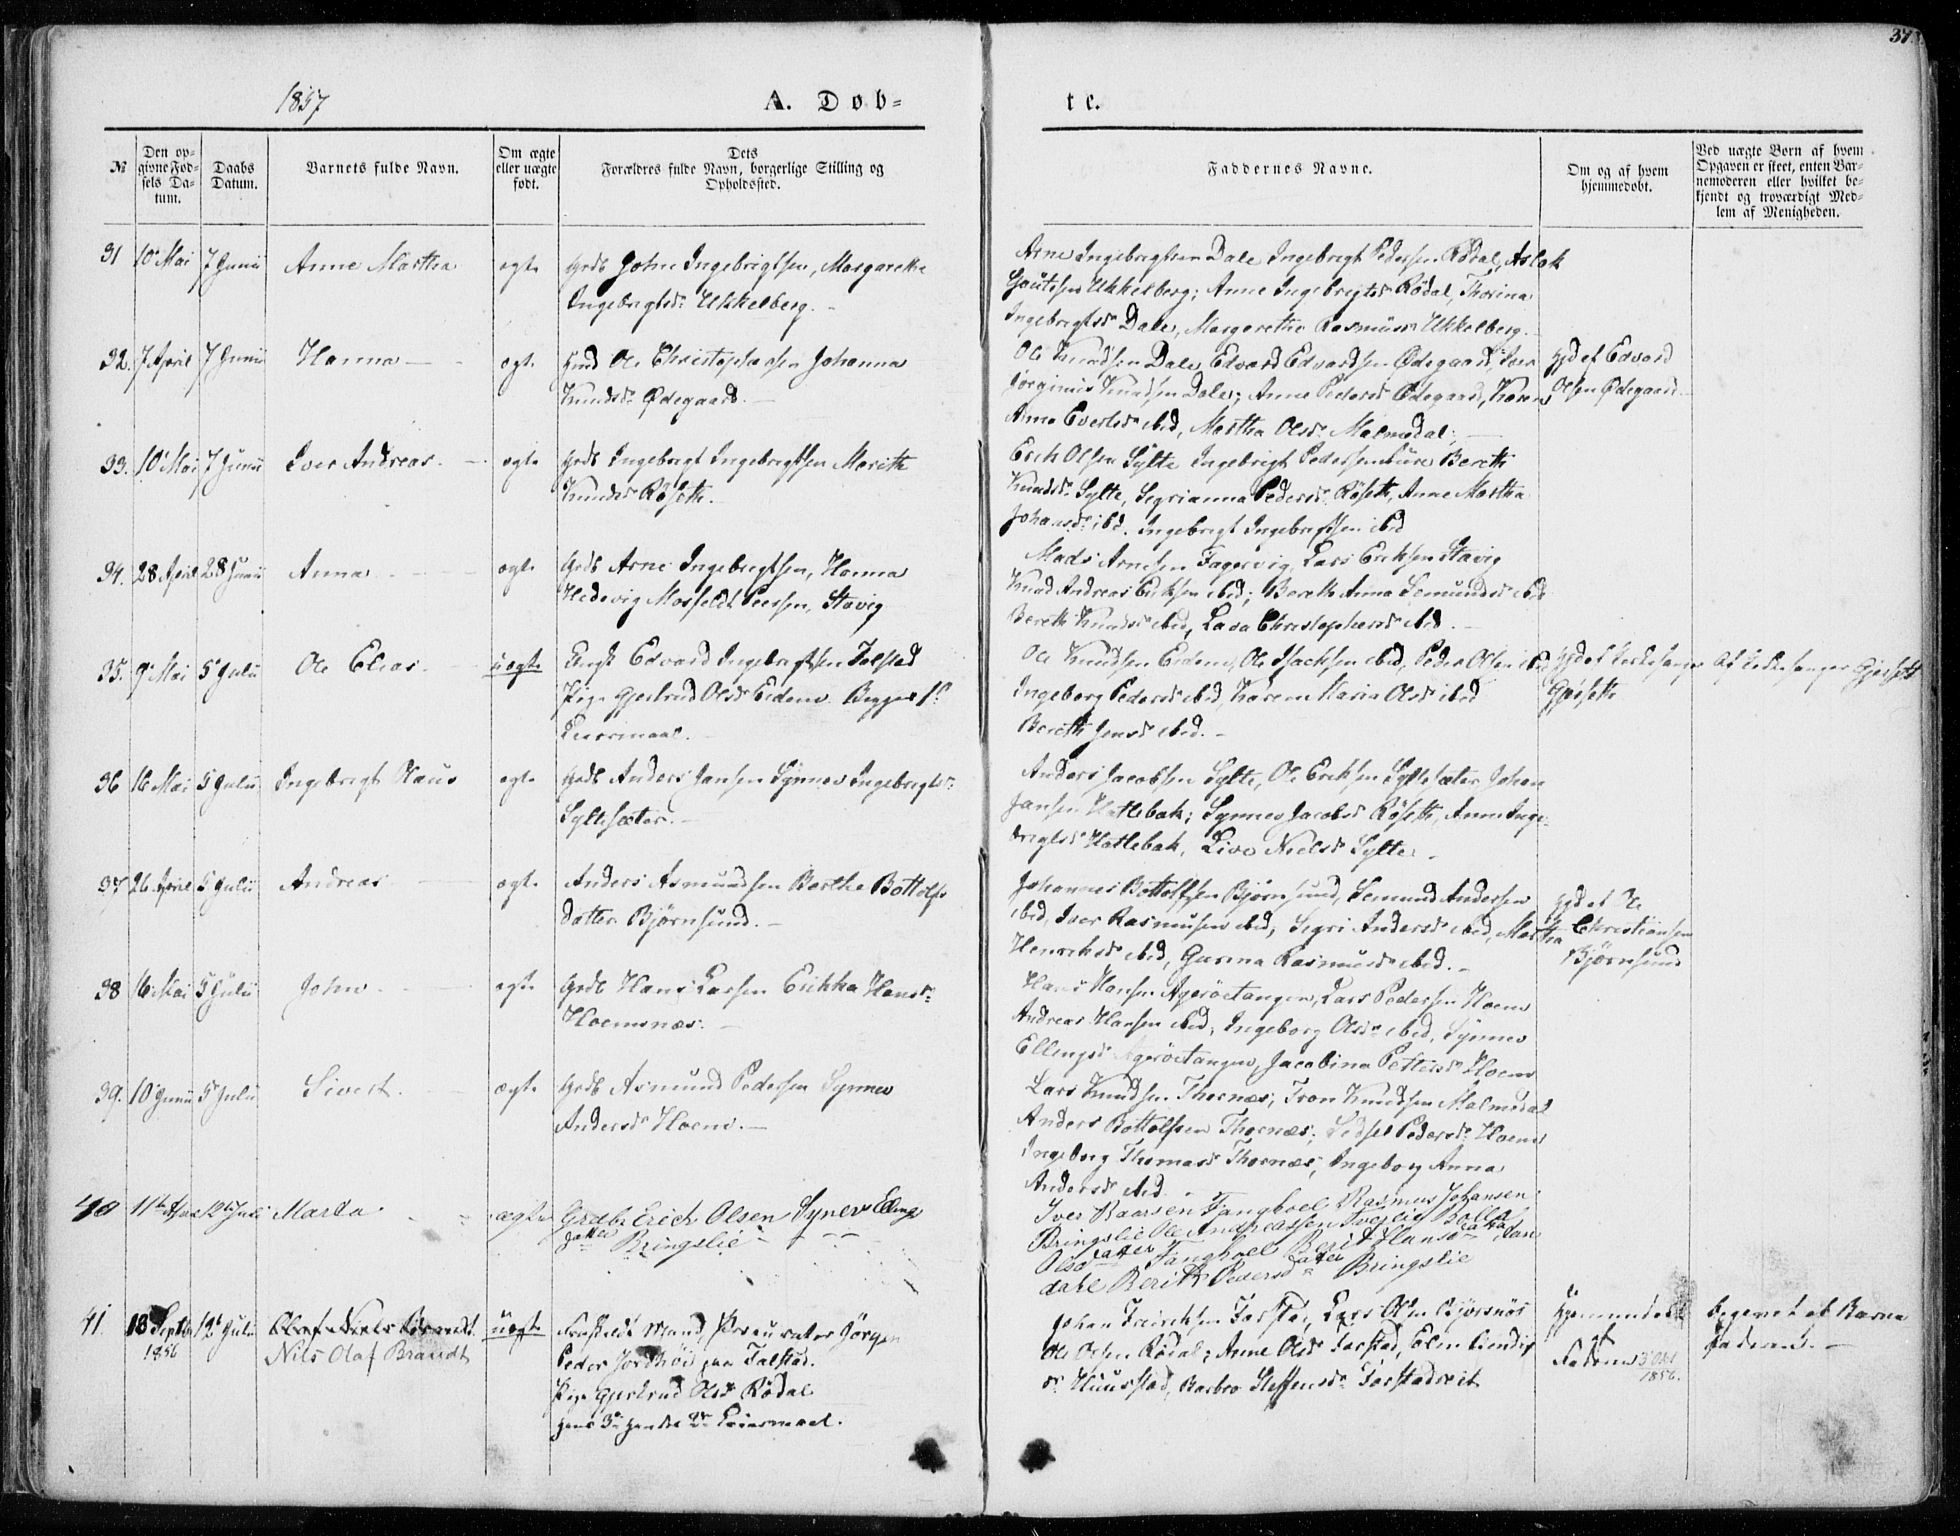 37.
1857
A. Døb-
te.
№
Den op-
givne Fød-
sels Da-
tum.
Daabs
Datum.
Barnets fulde Navn.
Om ægte
eller uægte
født.
Dets
Forældres fulde Navn, borgerlige Stilling og
Opholdssted.
Faddernes Navne.
Om og af hvem
hjemmedøbt.
Ved uægte Børn af hvem
Opgaven er skeet, enten Bar-
nemoderen eller hvilket be-
kjendt og troværdigt Med-
lem af Menigheden.
31 10 Mai 7 Junii Anne Martha ægte Grdb John Ingebrigtsen, Margarethe
Ingebrigtsdr Ukkelberg.
Arne Ingebrigtsen Dale Ingebrigt Pedersen Rödal, Aslak
Ukkelberg; Anne Ingebrigtsdr Rödal, Thorina
Ingebrigtsdr Dale, Margarethe Rasmusdr Ukkelberg.
32. 7 April 7 Junii Hanna ægte Ole Christophersen Johanna
Knudsdr Ødegaard.
Ole Knudsen Dale, Edvard Edvardsen Ødegaard, Iver
Jörginus Knudsen Dale; Anne Pedersdr Ødegaard, Karen
Anne Evertsdr ibid, Martha Olsdr Malmedal,
Hjd af Edvard
Olsen Ødegaard
33. 10 Mai 7 Junii Iver Andreas ægte Grdb Ingebrigt Ingebrigtsen Marith
Knudsdr Röseth.
Erich Olsen Sylte Ingebrigt Pedersen Bereth
Knudsdr Sylte, Segrianna Pedersdr Röseth, Anne Martha
Johansdr ibd. Ingebrigt Ingebrigtsen ibid
34. 28 April 28 Junii Anna ægte Grdb Arne Ingebrigtsen, Hanna
Hedevig Mosfeldt Stavig
Mads Arnesen Fagervig, Lars Eriksen Stavig
Knud Andreas Eriksen ibid; Bereth Anna Semundsdr ibid
Bereth Knudsdr ibid, Lava Christophersdr ibid.
35. 9 Mai 5 Julii Ole Elias uægte Ungk Edvard Ingebrigtsen Talstad
Pige Gjertrud Olsdr Eidem Begges 1ste
Leiermaal.
Ole Knudsen Eidem, Ole Isachsen ibid, Peder Olsen ibid
Ingeborg Pedersdr ibid, Karen Maria Olsdr ibid
Bereth Jensdr ibid.
Hjd af Kirkesanger
Gjöseth
Af Kirkesanger Gjöseth
36 16 Mai 5 Julii Ingebrigt Olaus ægte Grdb Anders Jansen Synnev Ingebrigtsdr
Syltesæter.
Anders Jacobsen Sylte, Ole Eriksen Syltesæter Johan
Jansen Hatlebak; Synnev Jacobsdr Röseth, Anne Inge-
brigtsdr Hatlebak, Live Nielsdr Sylte
37 26 April 5 Julii Andreas ægte Anders Asmundsen Berthe Bottolfs
datter Björnsund.
Johannes Bottolfsen Björnsund, Semund Andersen
ibid, Iver Rasmusen ibid; Segri Andersdr ibid, Martha
Henriksdr ibid, Gurina Rasmusdr ibid.
Hjd af Ole
Christiansen
Björnsund
38 16 Mai 5 Julii John ægte Grdb Hans Larsen Erikka Hansdr
Hoemsnæs.
Hans Hansen Agerøetangen, Lars Pedersen Hoem
Andreas Hansen ibid; Ingeborg Olsdr ibid, Synnev
Ellingsdr Agerøetangen, Jacobina Pettersdr Hoem
39. 10 Junii 5 Julii Sivert. ægte Grdb Asmund Pedersen Synnev
Andersdr Hoem.
Lars Knudsen Thornæs, Tron Knudsen Malmedal
Anders Bottolfsen Thornæs; Sidsel Pedersdr Hoem
Ingeborg Thomasdr Thornæs, Ingeborg Anna
Andersdr ibid.
40 11te 12te Juli Marta ægte Grdbr Erich Olsen Synev Elings
datter Bringslie
Iver Baarsen Tjanghoel Rasmus Johansen
Bringslie Ole Andreassen
Olsdatter Tanghoel Berit Hansdatter
dahl Berith Pedersdatter Bringslie
41. 18 Septbr 1856 12te Julii Olaf Niels Brandt
Nils Olaf Brandt
uægte Fraskildt Mand, Procurator Jörgen
Peder Jordhöi paa Talstad.
Pige Gjertrud Olsdr Rödal
hans 3die hendes 2det Leiermaal.
Johan Fredriksen Farstad, Lars Olsen Björsnös
Ole Olsen Rödal; Anne Olsdr Farstad, Elen
Huustad, Barbro Steffensdr Farstadreit
Hjemmedøbt
af
Faderen 3 Okt
1856.
begjeret af Barne
faderen.